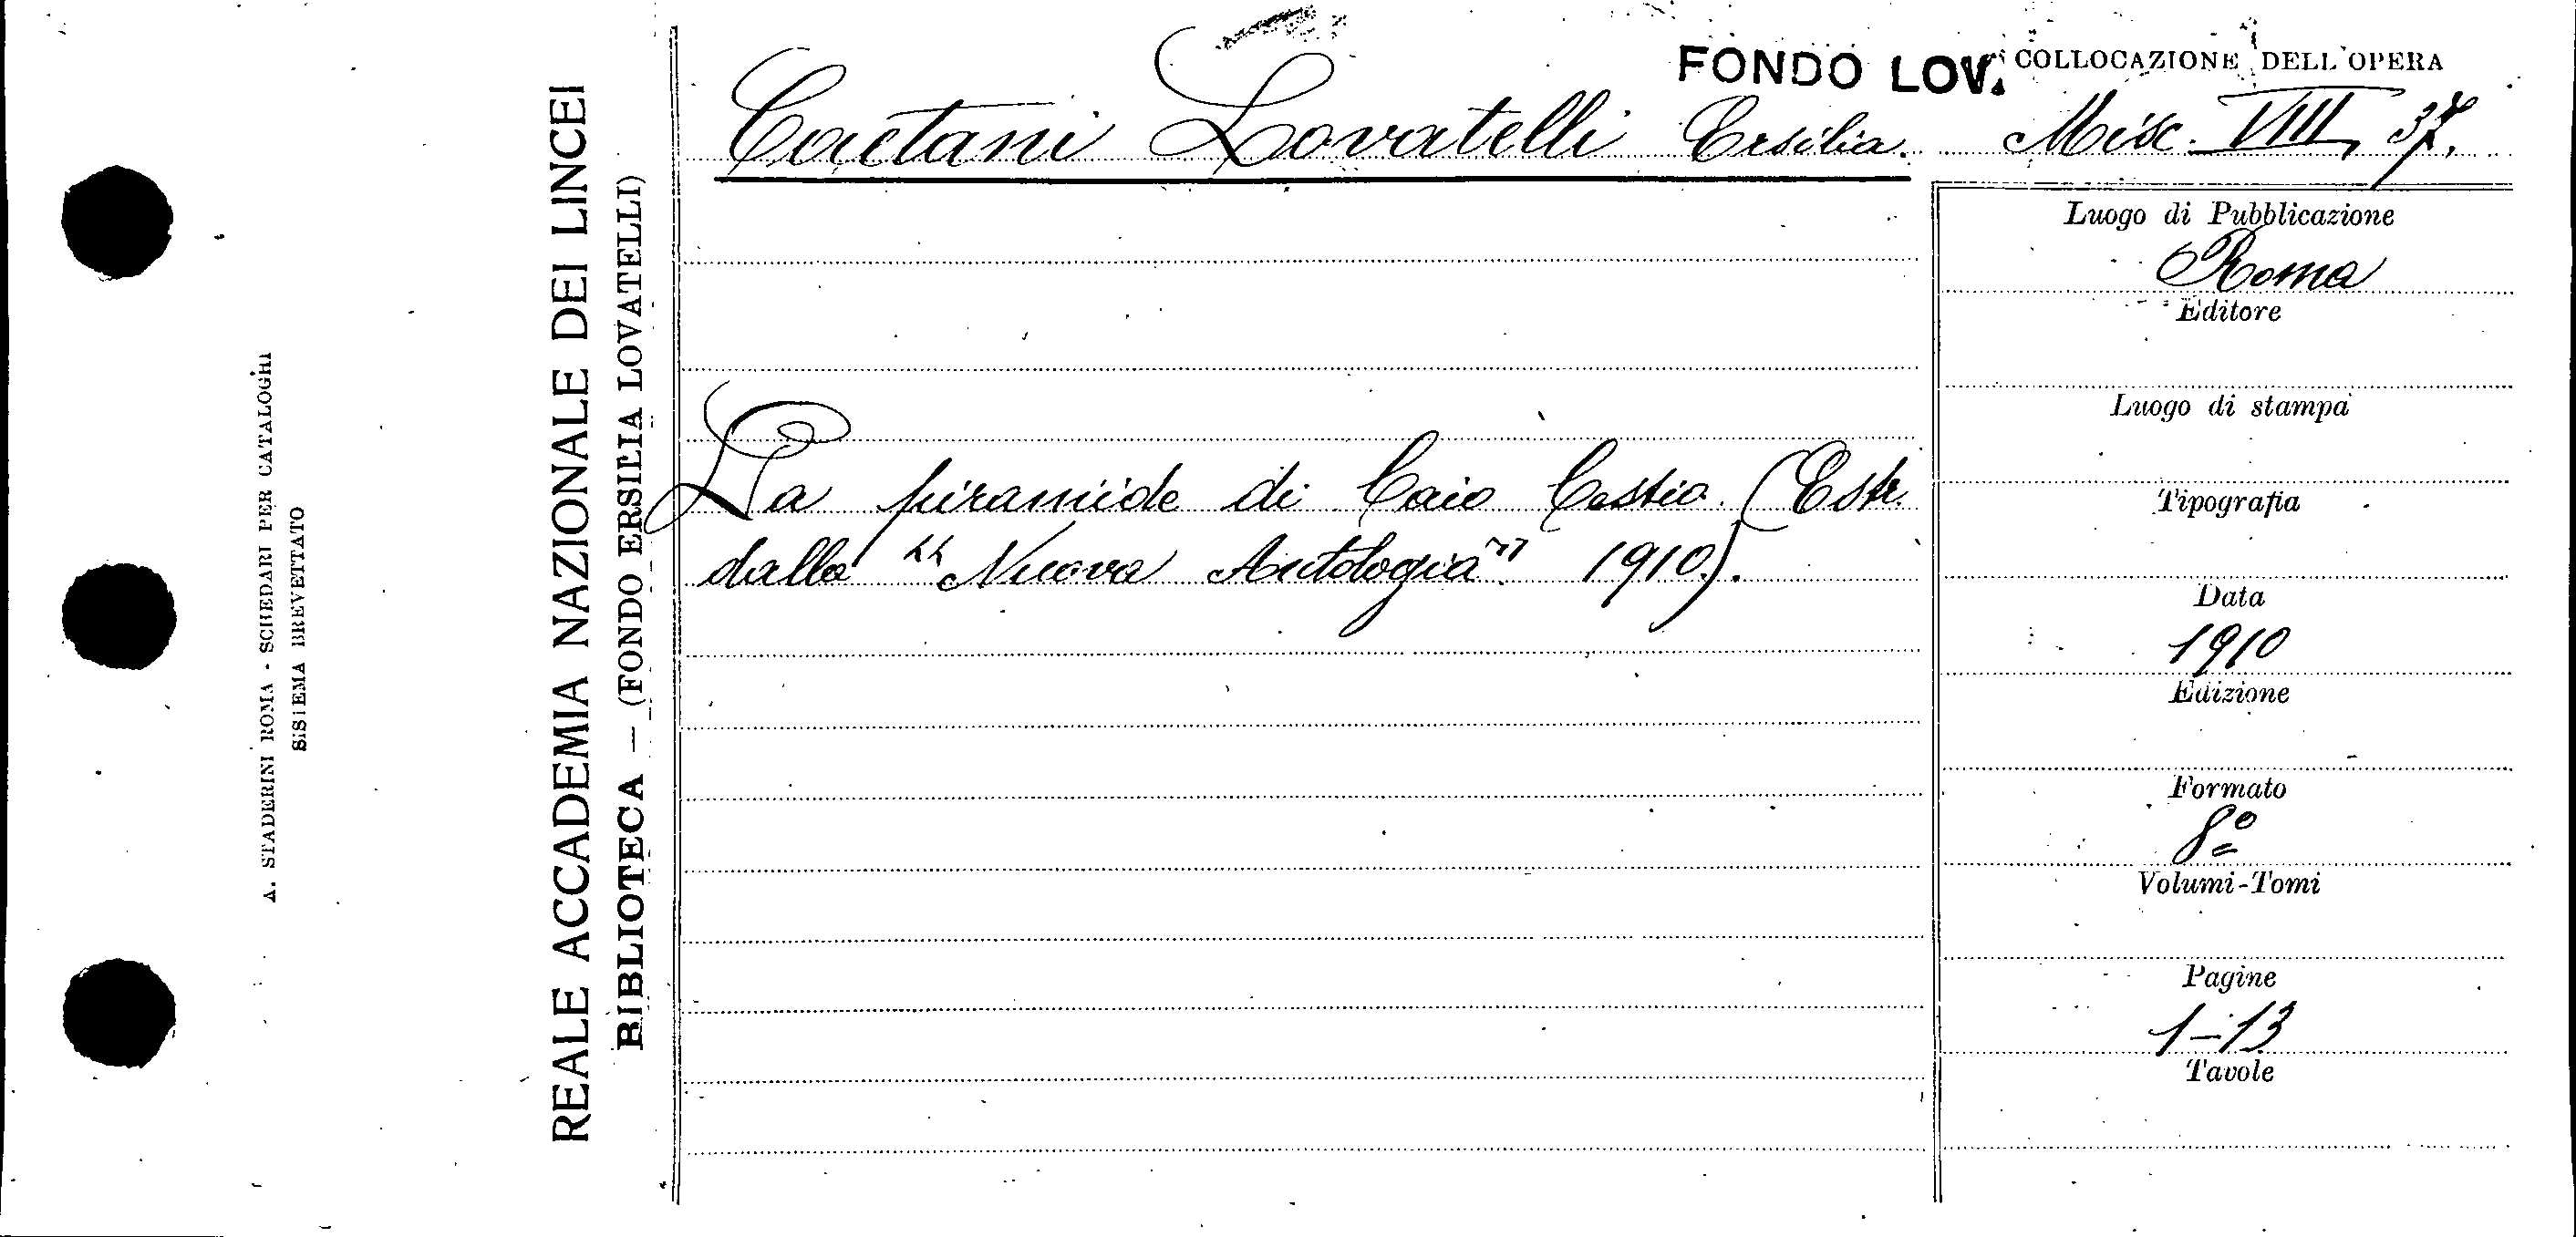 A. STADERINI ROMA - SCHEDARI PER CATALOGHI
SISTEMA BREVETTATO
REALE ACCADEMIA NAZIONALE DEI LINCEI
BIBLIOTECA — (FONDO ERSILIA LOVATELLI)
FONDO LOV. COLLOCAZIONE DELL'OPERA
Caetani Lovatelli Ersilia. Misc. VIII, 37.
La piramide di Caio Cestio. (Estr.
dalla "Nuova Antologia" 1910).
Luogo di Pubblicazione
Roma
Editore
Luogo di stampa
Tipografia
Data
1910
Edizione
Formato
8º
Volumi-Tomi
Pagine
1-13
Tavole